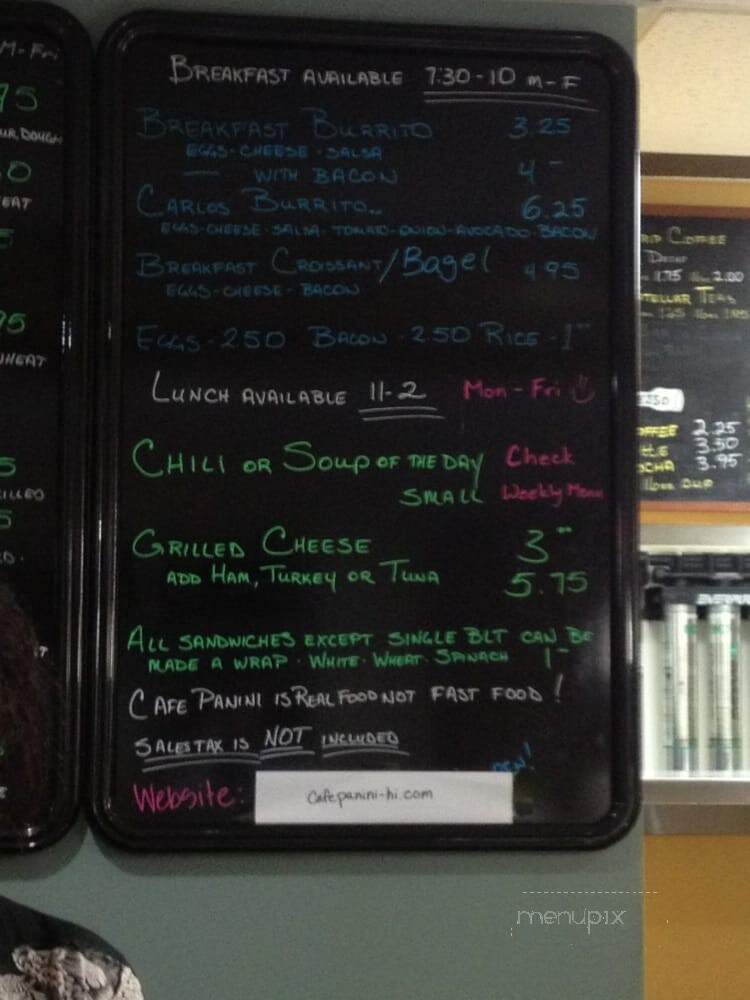 M-Fri
75
BREAKFAST AVAILABLE 7:30-10 M-F
BREAKFAST BURRITO 3.25
EGGS-CHEESE-SALSA
— WITH BACON 4 –
CARLOS BURRITO.. 6.25
EGGS-CHEESE-SALSA-TOMATO-ONION-AVOCADO-BACON
BREAKFAST CROISSANT/Bagel 4.95
EGGS-CHEESE-BACON
EGGS-2.50 BACON-2.50 RICE-1
LUNCH AVAILABLE 11-2 Mon-Fri
CHILI OR SOUP OF THE DAY Check
SMALL Weekly Menu
GRILLED CHEESE 3
ADD HAM, TURKEY OR TUNA 5.75
ALL SANDWICHES EXCEPT SINGLE BLT CAN BE
MADE A WRAP. WHITE. WHEAT. SPINACH 1 –
CAFE PANINI IS REAL FOOD NOT FAST FOOD!
SALES TAX IS NOT INCLUDED
Website: cafepanini-hi.com
COFFEE
1.75 2.00
TEAS
2.25
3.50
3.95
menupix